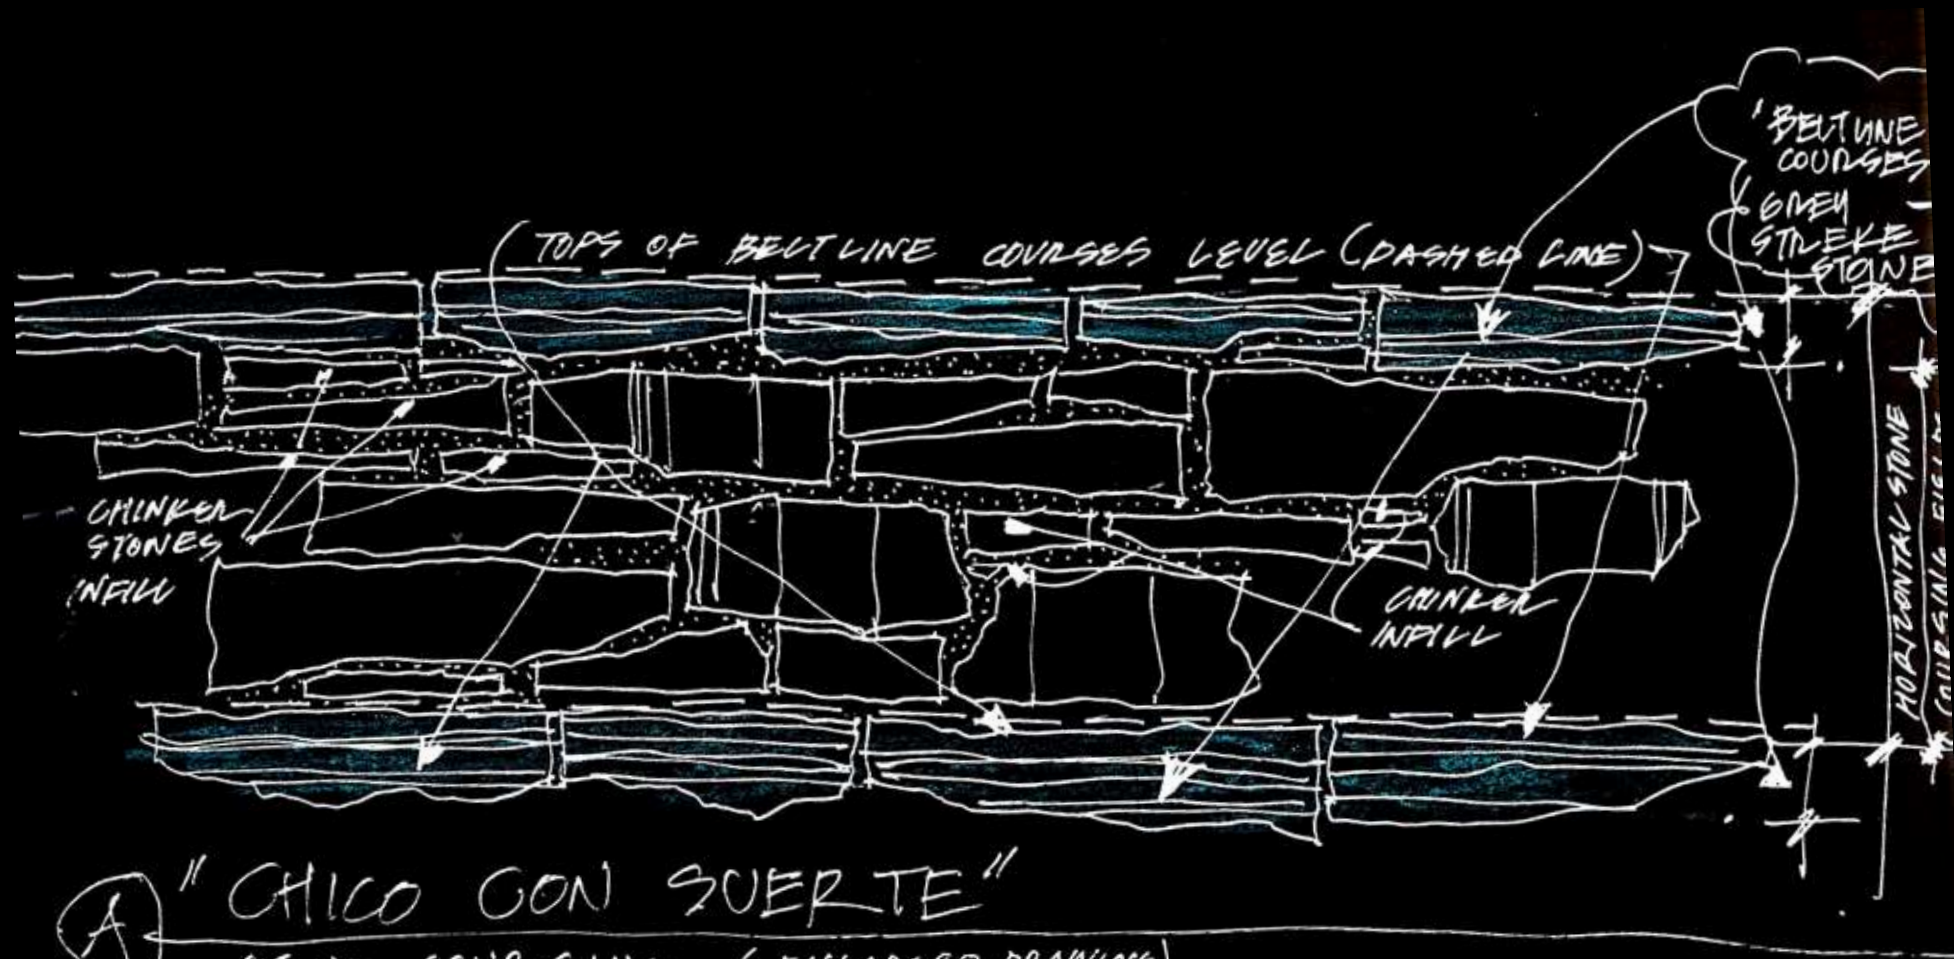 'BELTLINE
COURSES
GREY
STREKE
STONE
TOPS OF BELTLINE COURSES LEVEL (DASHED LINE)
CHINKER
STONES
INFILL
CHINKER
INFILL
HORIZONTAL STONE
COURSING
A "CHICO CON SUERTE"